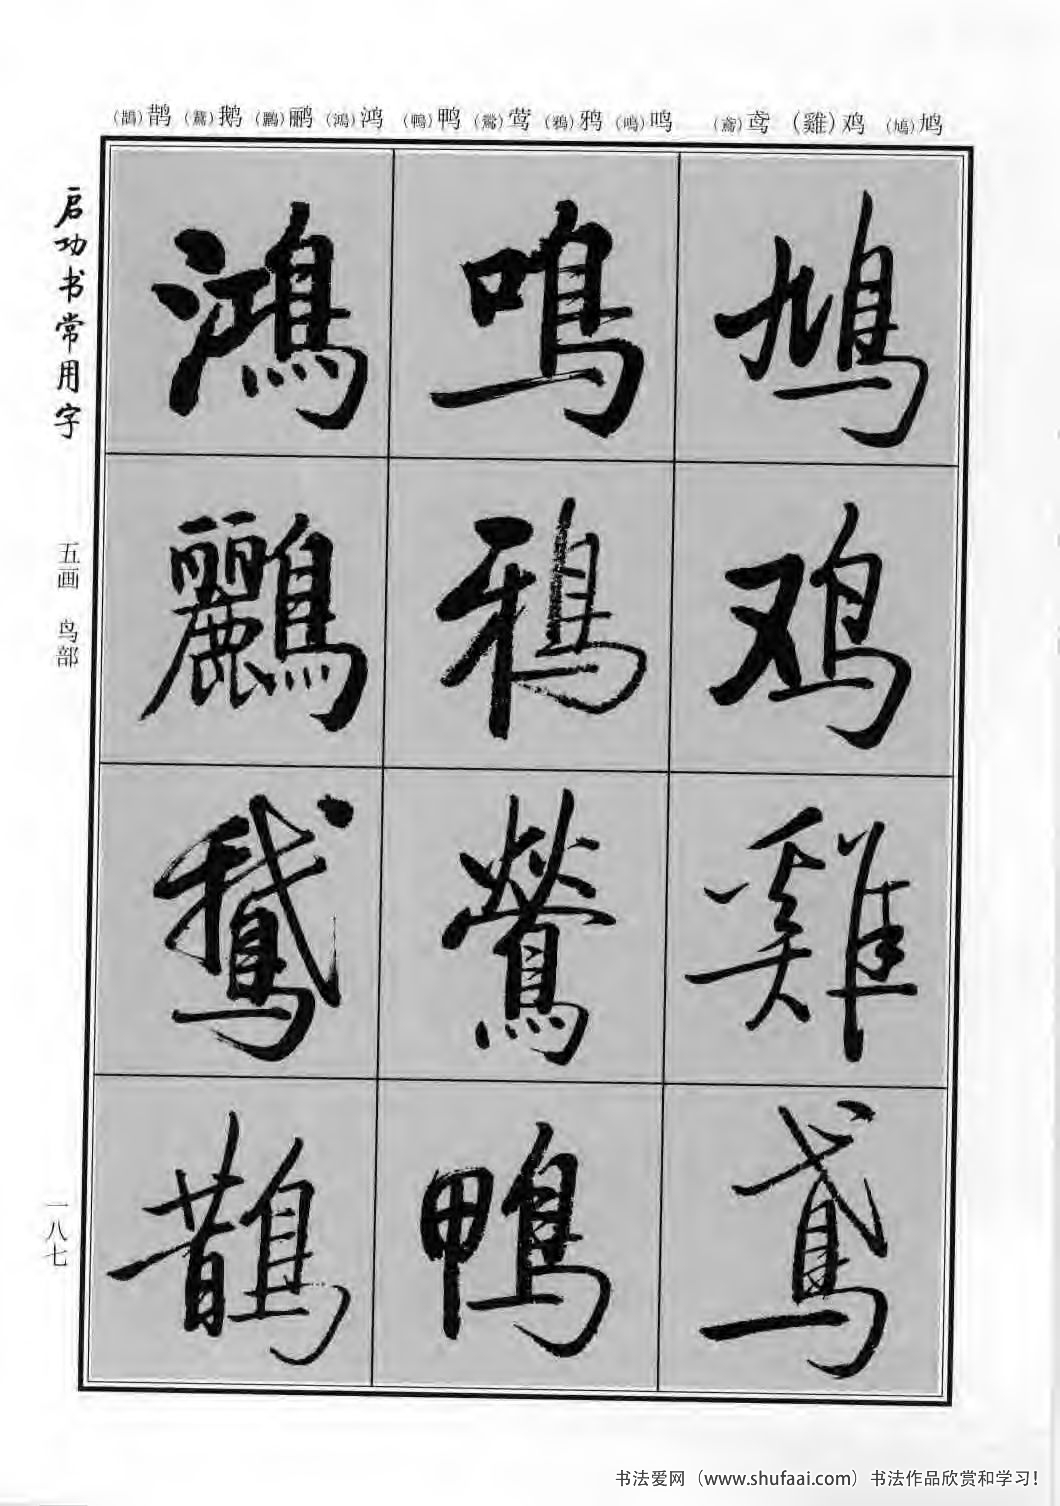 （鵲）鹊（鵞）鹅（鸝）鹂（鴻）鸿（鴨）鸭（鶯）莺（鴉）鸦（鳴）鸣（鳶）鸢（雞）鸡（鳩）鸠
启功书常用字
五画 鸟部
一八七
鳩
鸡
雞
鳶
鳴
鴉
鶯
鴨
鴻
鸝
鵞
鵲
书法爱网（www.shufaai.com）书法作品欣赏和学习！